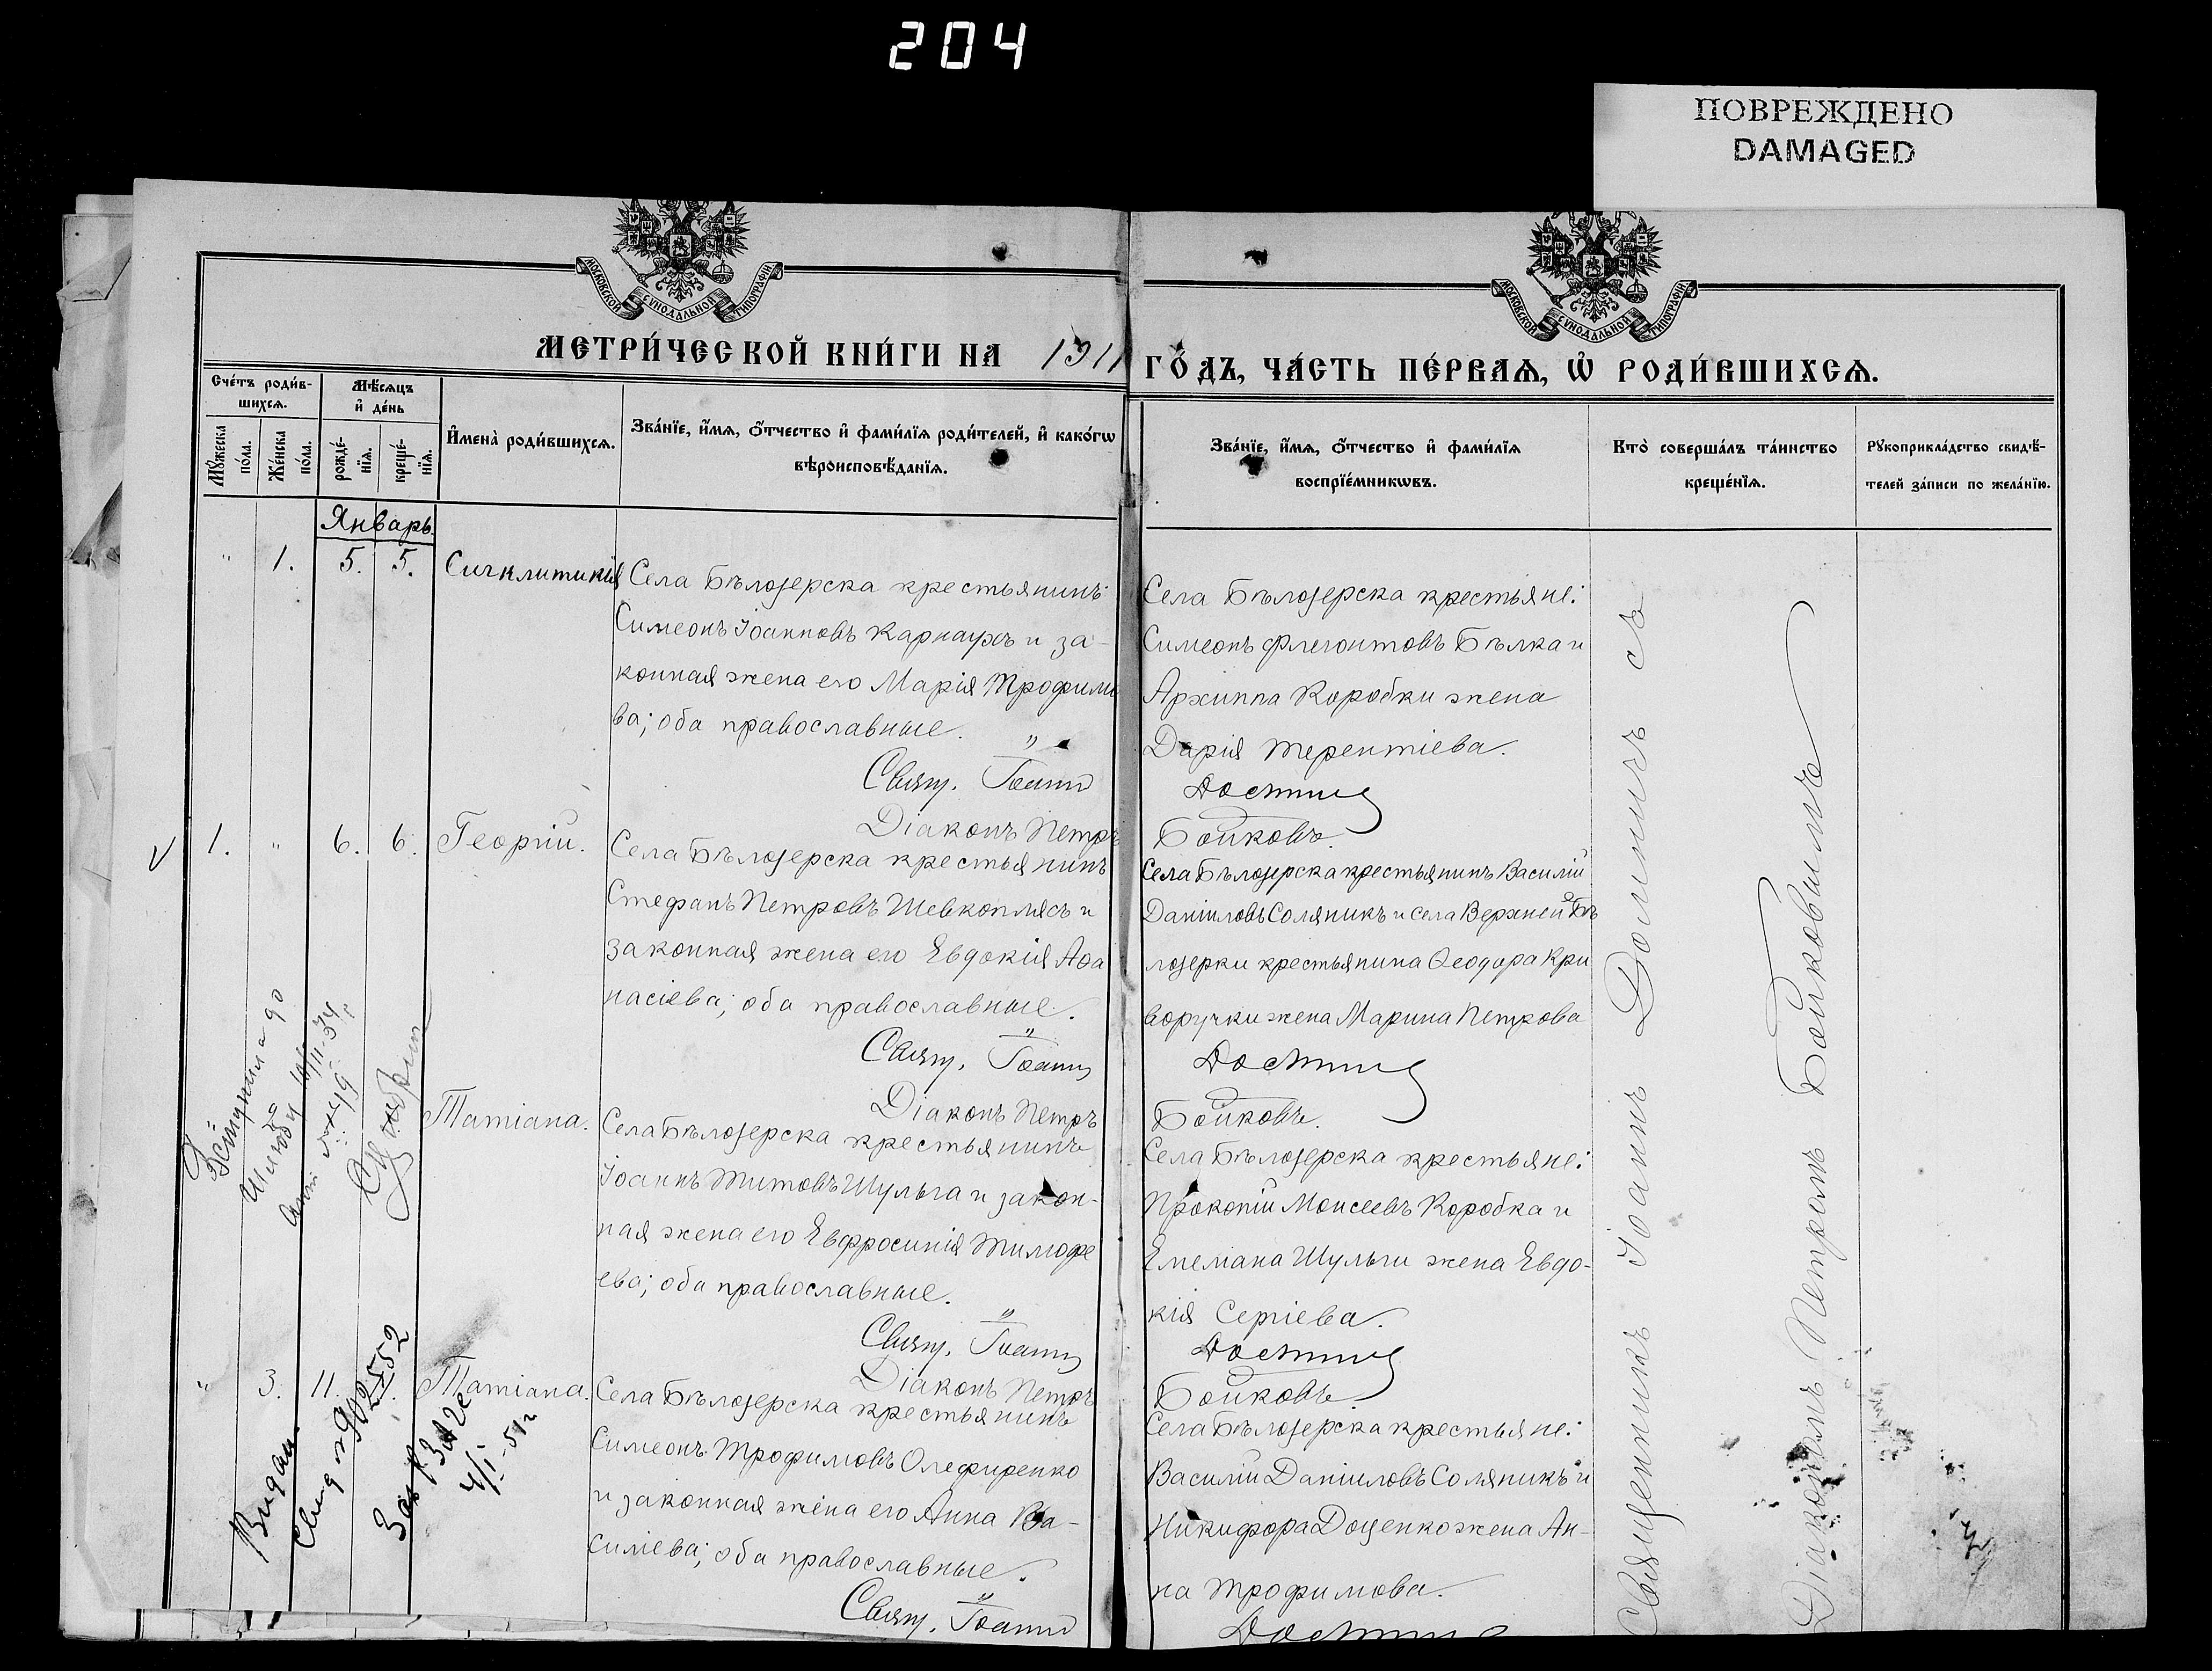 204
ПОВРЕЖДЕНО
DAMAGED
МОСКОВСКОЙ СѴНОДАЛЬНОЙ ТИПОГРАФІИ
МОСКОВСКОЙ СѴНОДАЛЬНОЙ ТИПОГРАФІИ
МЕТРИ́ЧЕСКОЙ КНИ́ГИ НА 1911
ГО́ДЪ, ЧА́СТЬ ПЕ́РВАѦ, Ѡ҆ РОДИ́ВШИХСѦ.
Сче́тъ роди́в-
шихсѧ.
Мѣ́сѧцъ
и҆ де́нь
Мꙋ́жеска
по́ла.
Же́нска
по́ла.
рожде́-
нїѧ.
креще́-
нїѧ.
И҆мена̀ роди́вшихсѧ.
Зва́нїе, и҆́мѧ, ѻ҆́тчество и҆ фами́лїѧ роди́телей, и҆ како́гѡ
вѣроисповѣ́данїѧ.
Зва́нїе, и҆́мѧ, ѻ҆́тчество и҆ фами́лїѧ
воспрїе́мникѡвъ.
Кто̀ соверша́лъ та́инство
креще́нїѧ.
Рꙋкоприкла́дство свидѣ́-
телей за́писи по жела́нїю.
Январь.
" 1. 5. 5. Сигклитикія
Села Бѣлозерска крестьянинъ
Симеонъ Іоанновъ Карнаухъ и за-
конная жена его Марія Трофимо
ва; оба православные.
Свящ. Іоаннъ
Діаконъ Петръ
Села Бѣлозерска крестьяне:
Симеонъ Флегонтовъ Бѣлка и
Архиппа Коробки жена
Дарія Терентіева.
Бойковъ.
1. " 6. 6. Георгій.
Села Бѣлозерска крестьянинъ
Стефанъ Петровъ Шевкоплясъ и
законная жена его Евдокія Аѳа
насіева; оба православные.
Свящ. Іоаннъ
Діаконъ Петръ
Села Бѣлозерска крестьянинъ Василій
Даніиловъ Соляникъ и села Верхней Бѣ
лозерки крестьянина Ѳеодора Кри
воручки жена Марина Петрова
Бойковъ.
Татіана.
Села Бѣлозерска крестьянинъ
Іоаннъ Титовъ Шульга и закон-
ная жена его Евфросинія Тимофе
ева; оба православные.
Свящ. Іоаннъ
Діаконъ Петръ
Села Бѣлозерска крестьяне:
Прокопій Моисеевъ Коробка и
Емеліана Шульги жена Евдо-
кія Сергіева.
Бойковъ
" 3. 11. Татіана.
Села Бѣлозерска крестьянинъ
Симеонъ Трофимовъ Олефиренко
и законная жена его Анна Ва-
силіева; оба православные.
Свящ. Іоаннъ
Села Бѣлозерска крестьяне:
Василій Даніиловъ Соляникъ и
Никифора Доценко жена Ан-
на Трофимова.
Священникъ Іоаннъ съ
Діакономъ Петромъ Бойковымъ